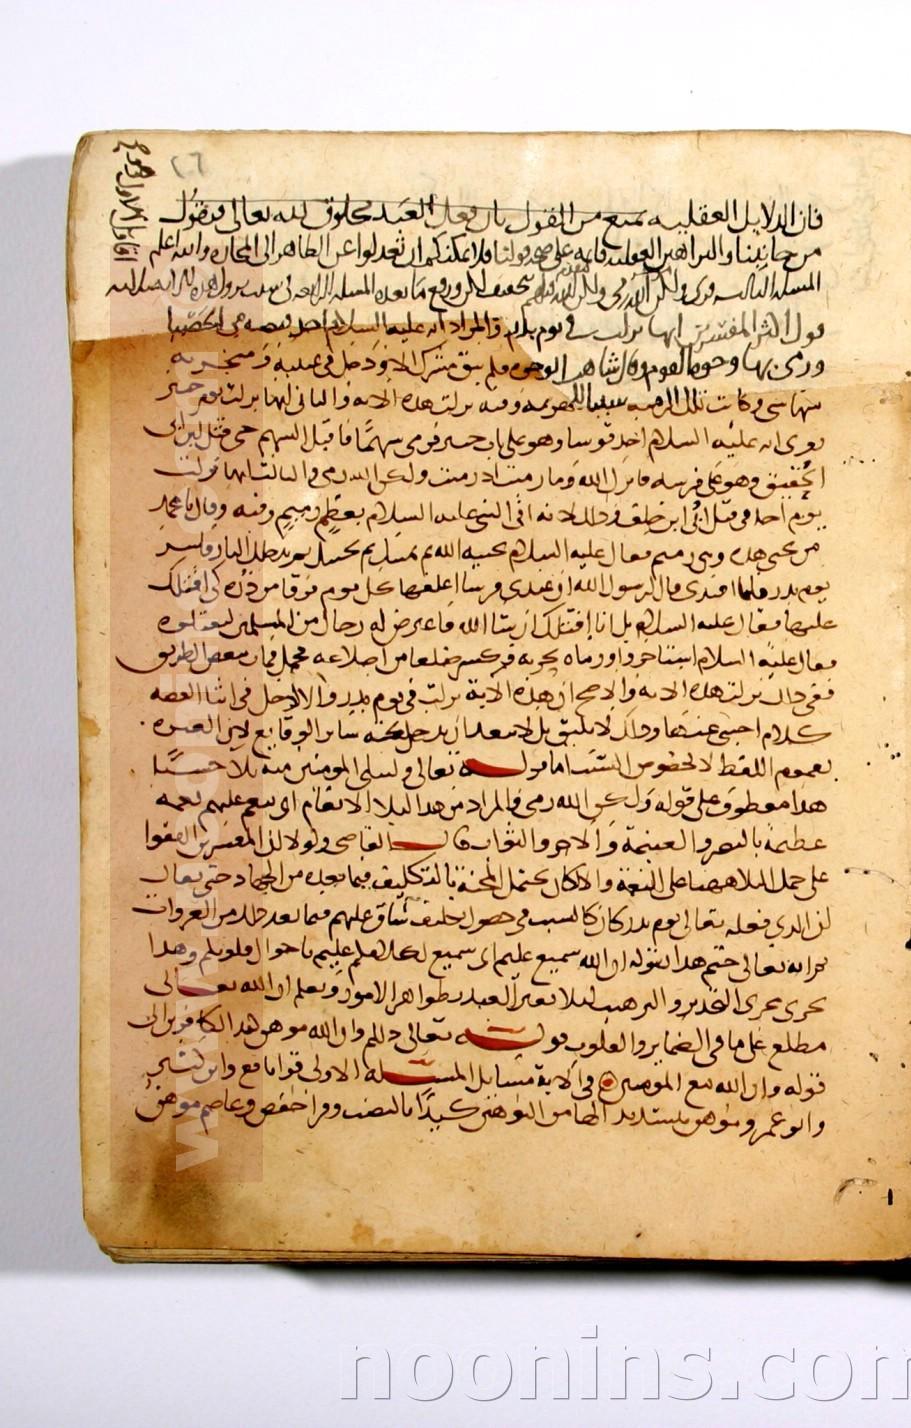 ٢٦
فان الدلايل العقليه تمنع من القول بان فعل العبد مخلوق لله تعالى فنقول
من جانبنا والبراهين العقليه قايمه على صحه قولنا فلا يمكنكم ان تعدلوا عن الظاهر الى المجاز والله اعلم
المسئله الثالثه قرى ولكن الله رمى ولكن الله قتلهم بتخفيف لكن ورفع ما بعده المسئله الرابعه فى سبب نزول هذه الايه
قول اكثر المفسرين انها نزلت فى يوم بدر والمراد انه عليه السلام اخذ قبضه من الحصبا
ورمى بها وجوه القوم وقال شاهت الوجوه فلم يبق مشرك الا ودخل فى عينيه ومنخريه
منها شى وكانت تلك الرميه سببا للهزيمه وفيه نزلت هذه الايه والثانى انها نزلت يوم خيبر
روى انه عليه السلام اخذ قوسا وهو على باب خيبر فرمى سهما فاقبل السهم حتى قتل ابن ابى
الحقيق وهو على فرسه فانزل الله وما رميت اذ رميت ولكن الله رمى والثالث انها نزلت
يوم احد فى قتل ابى ابن خلف وذلك لانه اتى النبى عليه السلام بعظم رميم وفته وقال يا محمد
من يحيى هذه وهى رميم فقال عليه السلام يحييه الله ثم يميتك ثم يحييك ثم يدخلك النار فاسر
يوم بدر فلما افتدى قال لرسول الله ان عندى فرسا اعلفها كل يوم فرقا من ذره كى اقتلك
عليها فقال عليه السلام بل انا اقتلك ان شا الله فاعترض له رجال من المسلمين ليقتلوه
فقال عليه السلام استاخروا ورماه بحربه فكسر ضلعا من اضلاعه فحمل فمات ببعض الطريق
ففى ذلك نزلت هذه الايه والاصح ان هذه الاية نزلت فى يوم بدر والا لدخل فى اثنا القصه
كلام اجنبى عنها وذلك لا يليق بل لا يبعد ان يدخل تحته ساير الوقايع لان العبره
بعموم اللفظ لا لخصوص السبب اما قوله تعالى وليبلى المومنين منه بلا حسنا
هذا معطوف على قوله ولكن الله رمى والمراد من هذا البلا الانعام اى ينعم عليهم نعمه
عظيمة بالنصر والغنيمة والاجر والثواب قال القاضى ولولا ان المفسرين اتفقوا
على حمل البلا ههنا على النعمة والا لكان يحتمل المحنة بالتكليف فيما بعده من الجهاد حتى يقال
ان الذي فعله تعالى يوم بدر كان كالسبب فى حصول تكليف شاق عليهم فيما بعد ذلك من الغزوات
ثم انه تعالى ختم هذا بقوله ان الله سميع عليم اى سميع لكلامكم عليم باحوال قلوبكم وهذا
يجرى مجرى التحذير والترهيب ليلا يغتر العبد بظواهر الامور ويعلم ان الله تعالى
مطلع على ما فى الضماير والقلوب قوله تعالى ذلكم وان الله موهن كيد الكافرين الى
قوله وان الله مع المومنين فى الاية مسايل المسئله الاولى قرا نافع وابن كثير
وابو عمرو موهن بتشديد الها من التوهين كيدا بالنصب وقرا حفص وعاصم موهن
www.noonins.com
noonins.com